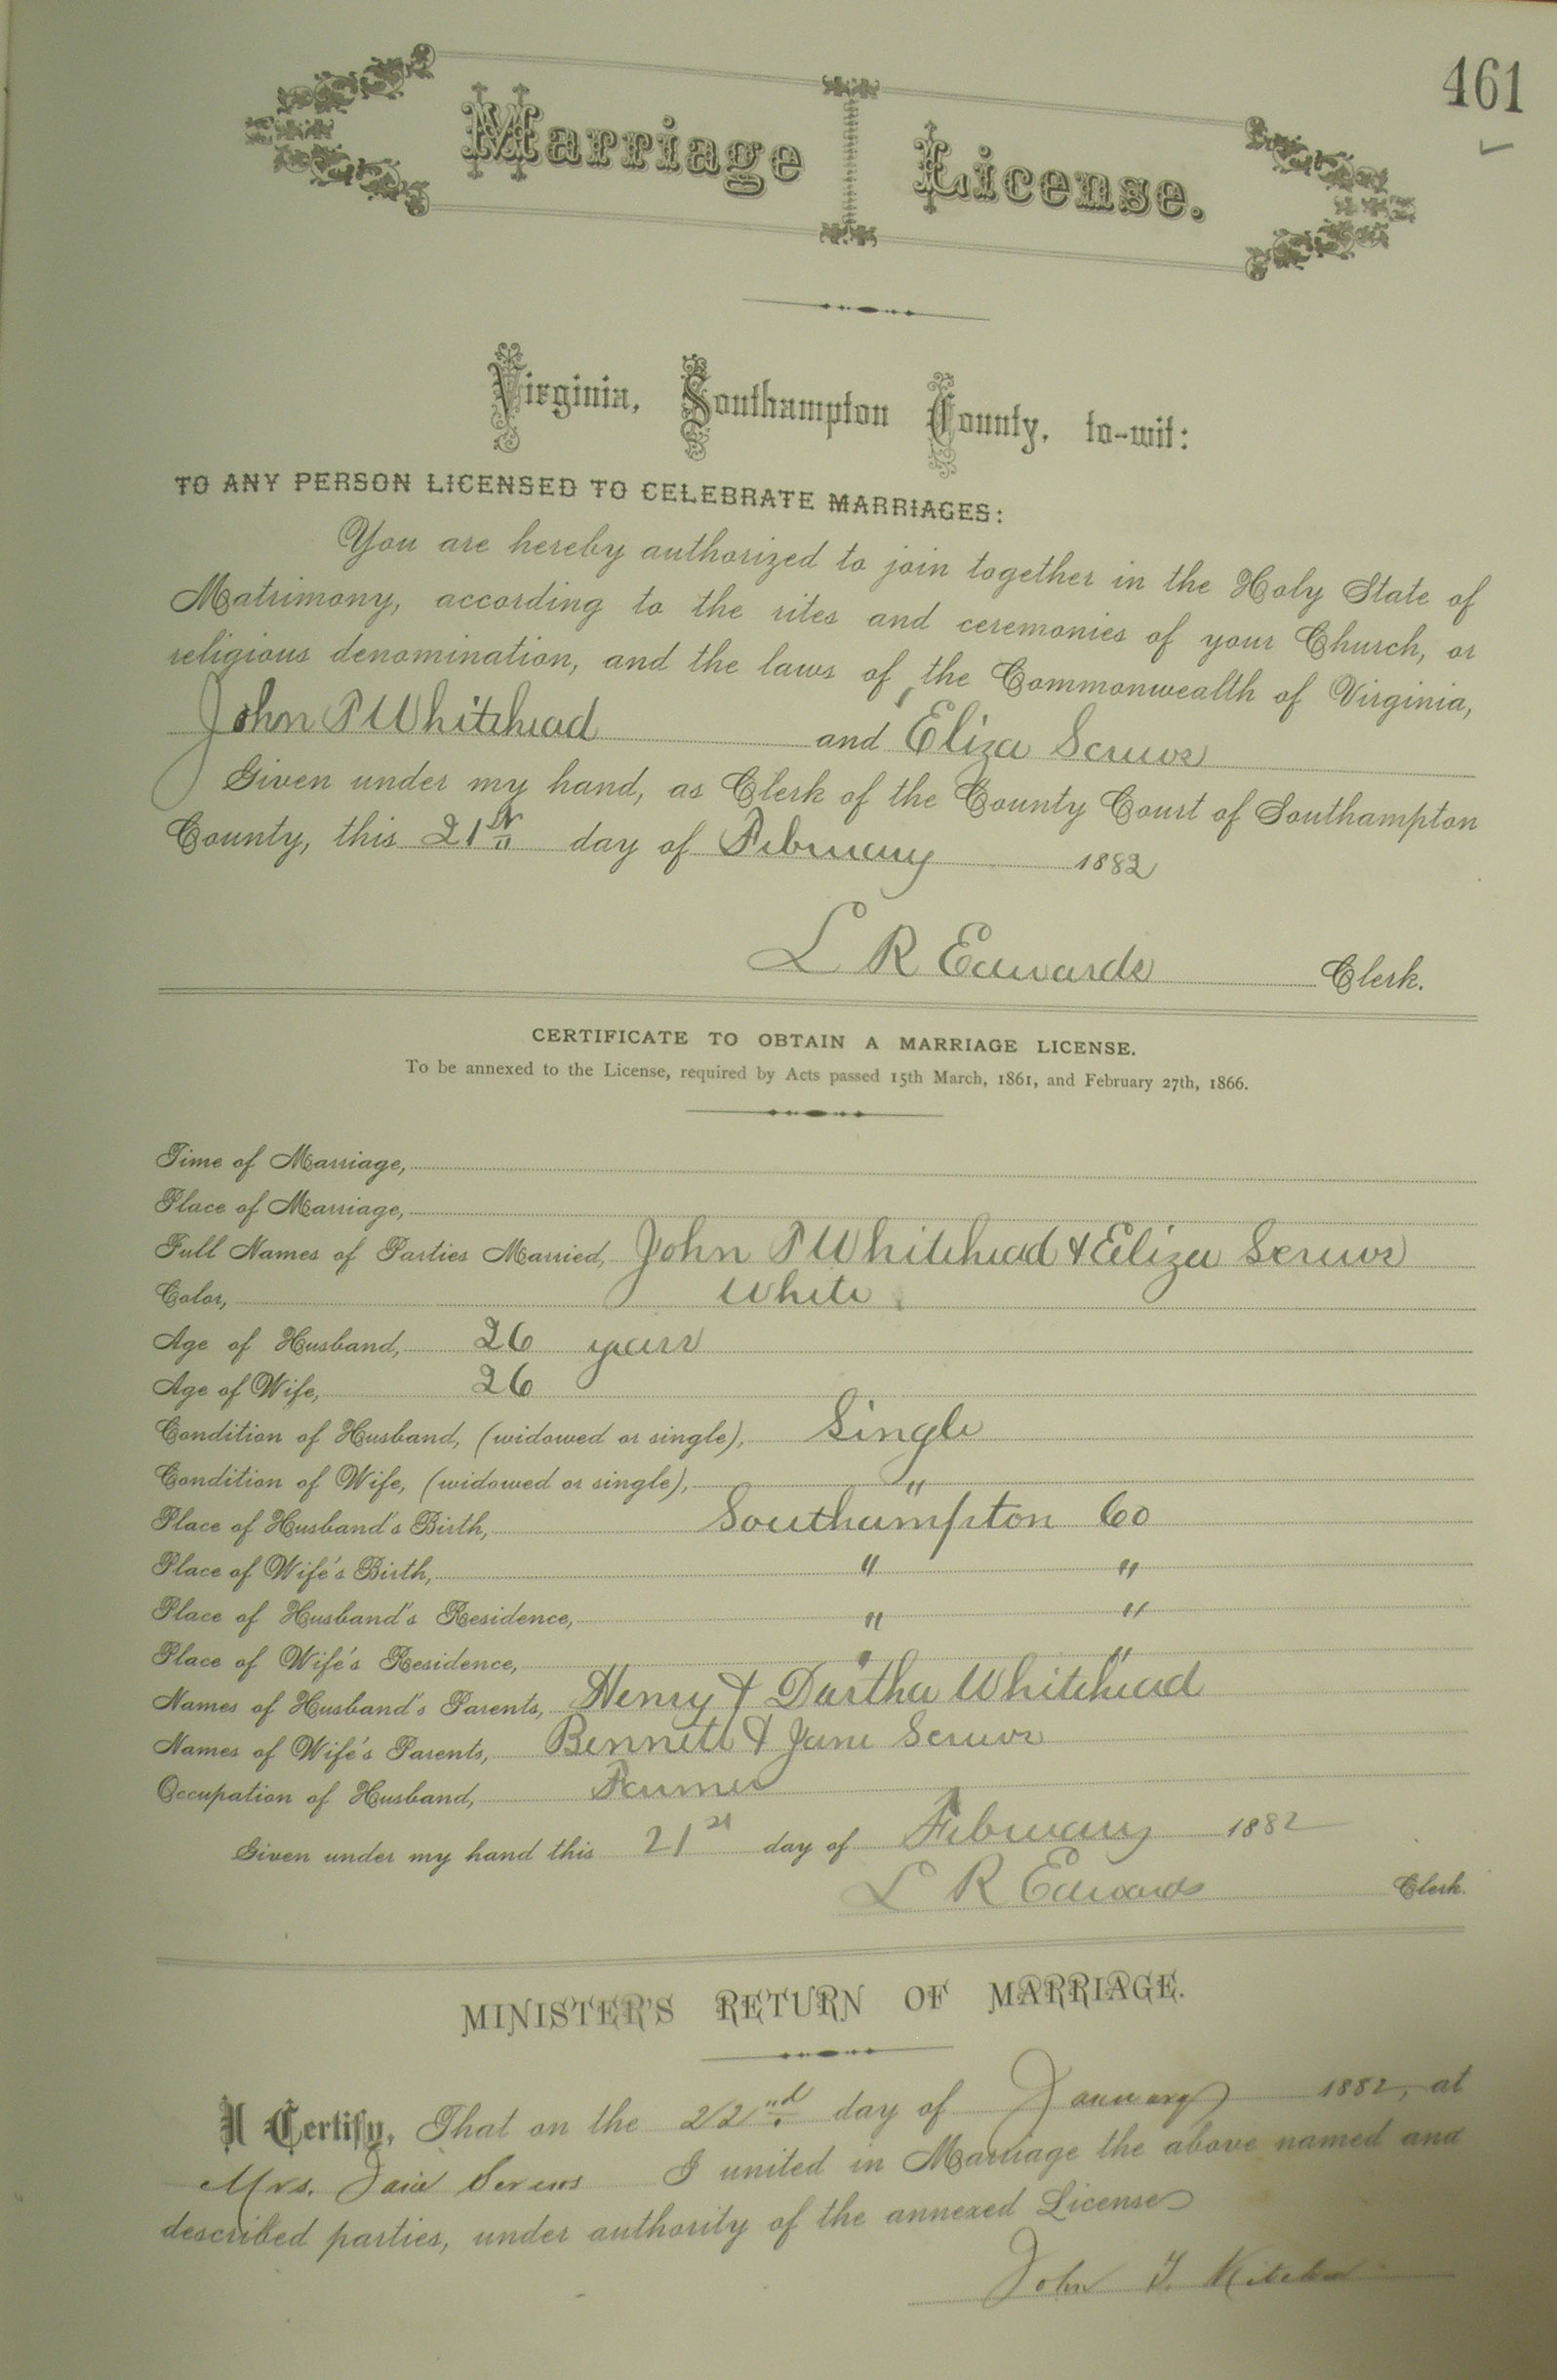 461
Marriage License.
Virginia, Southampton County, to-wit:
TO ANY PERSON LICENSED TO CELEBRATE MARRIAGES:
You are hereby authorized to join together in the Holy State of
Matrimony, according to the rites and ceremonies of your Church, or
religious denomination, and the laws of the Commonwealth of Virginia,
John P Whitehead and Eliza Screws
Given under my hand, as Clerk of the County Court of Southampton
County, this 21st day of February 1882
L R Edwards Clerk.
CERTIFICATE TO OBTAIN A MARRIAGE LICENSE.
To be annexed to the License, required by Acts passed 15th March, 1861, and February 27th, 1866.
Time of Marriage,
Place of Marriage,
Full Names of Parties Married, John P Whitehead & Eliza Screws
Color, White
Age of Husband, 26 years
Age of Wife, 26
Condition of Husband, (widowed or single), Single
Condition of Wife, (widowed or single), "
Place of Husband's Birth, Southampton Co
Place of Wife's Birth, " "
Place of Husband's Residence, " "
Place of Wife's Residence, " "
Names of Husband's Parents, Henry & Dartha Whitehead
Names of Wife's Parents, Bennett & Jane Screws
Occupation of Husband, Farmer
Given under my hand this 21st day of February 1882
L R Edwards Clerk.
MINISTER'S RETURN OF MARRIAGE.
I Certify, That on the 22nd day of January 1882, at
Mrs. Jane Screws I united in Marriage the above named and
described parties, under authority of the annexed License
John T.